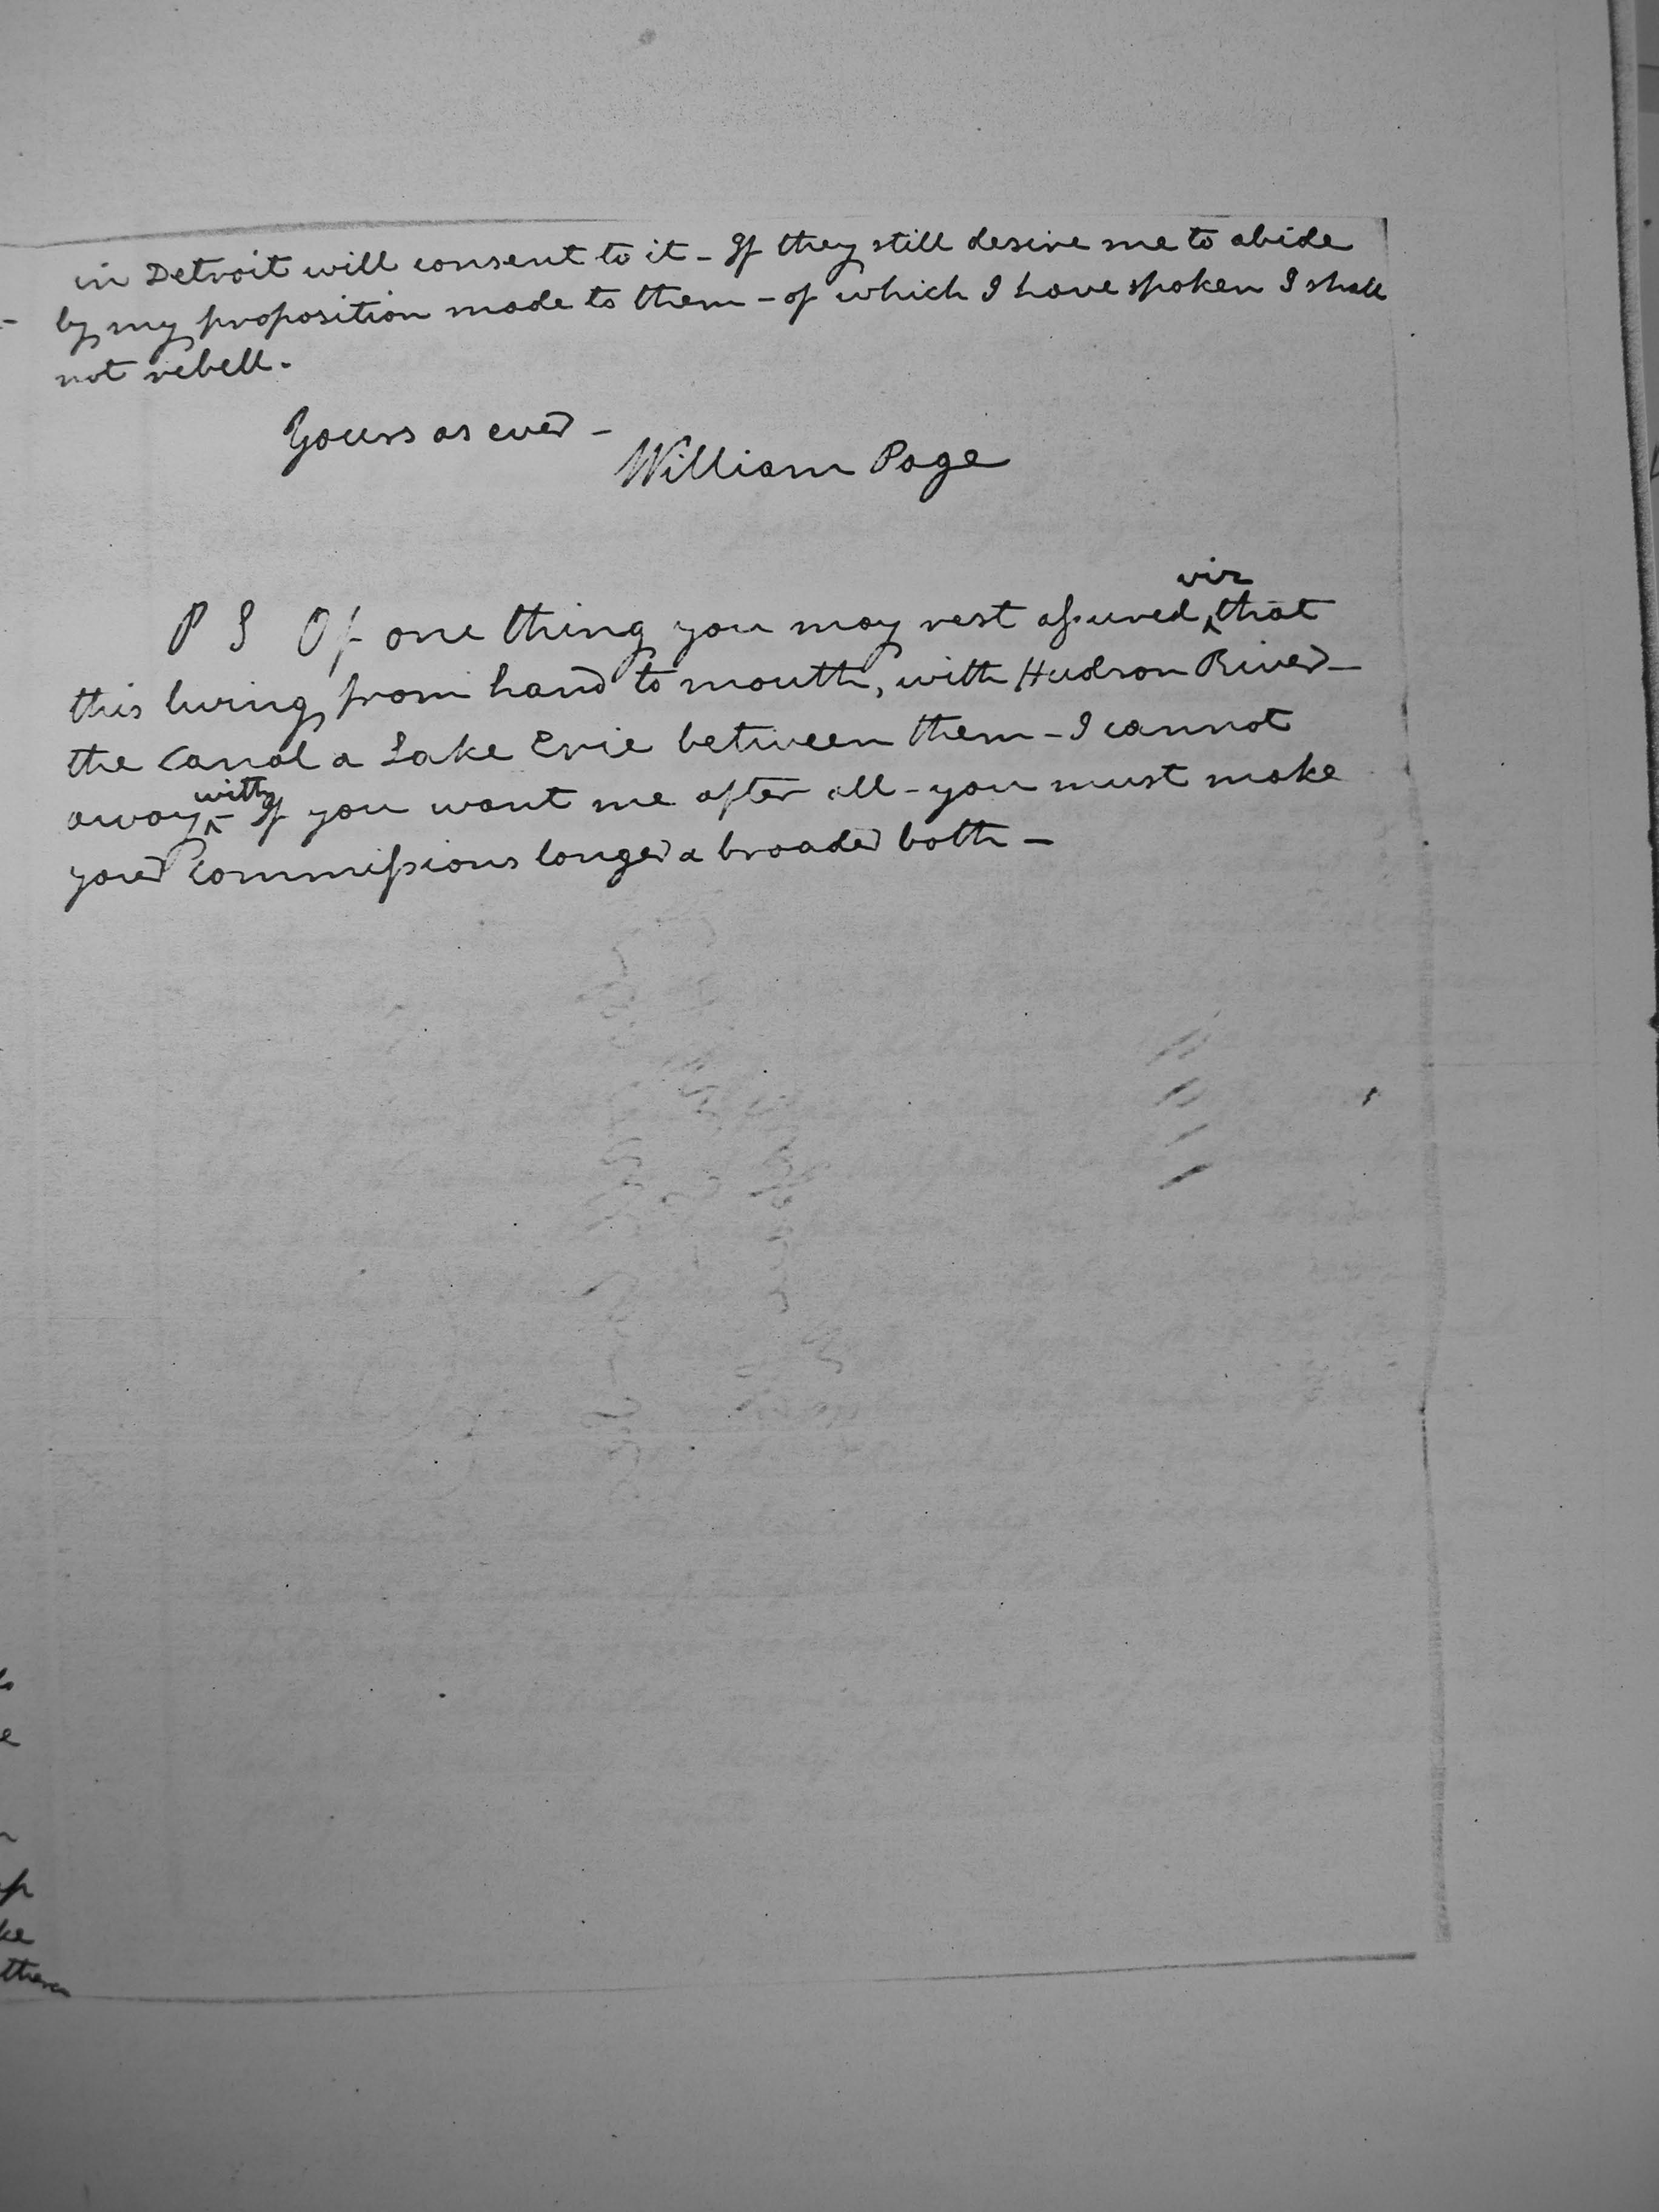 in Detroit will consent to it - If they still desire me to abide
by my proposition made to them - of which I have spoken I shall
not rebell.
Yours as ever -
William Page
viz
P S Of one thing you may rest assured ^ that
this living from hand to mouth, with Hudson River -
the Canal & Lake Erie between them - I cannot
with
away ^ - If you want me after all - you must make
your Commissions longer & broader both -
ke
them